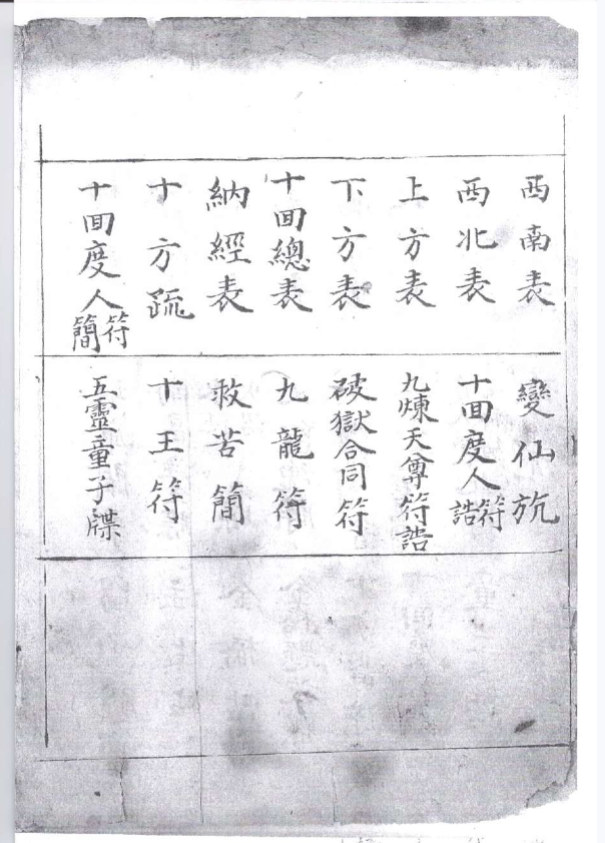 西南表
西北表
上方表
下方表
十回總表
納經表
十方䟽
十回度人符簡
變仙旊
十回度人符誥
九煉天尊符誥
破獄合同符
九龍符
救苦簡
十王符
五靈童子牒